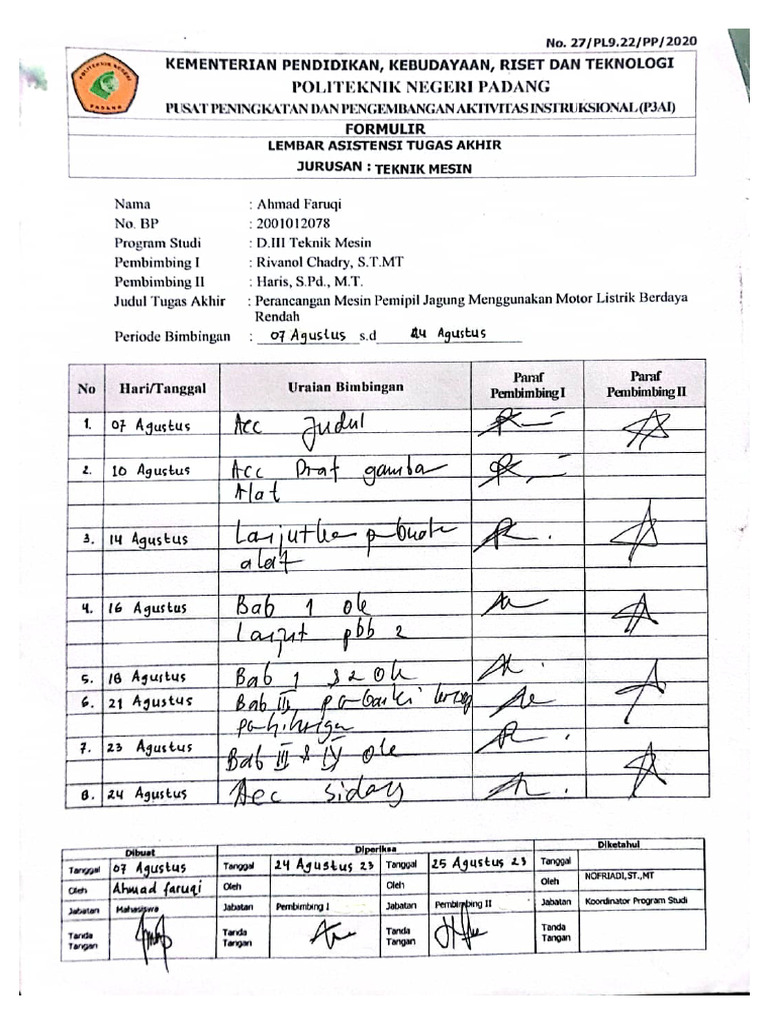 No. 27/PL9.22/PP/2020
POLITEKNIK NEGERI
PADANG
KEMENTERIAN PENDIDIKAN, KEBUDAYAAN, RISET DAN TEKNOLOGI
POLITEKNIK NEGERI PADANG
PUSAT PENINGKATAN DAN PENGEMBANGAN AKTIVITAS INSTRUKSIONAL (P3AI)
FORMULIR
LEMBAR ASISTENSI TUGAS AKHIR
JURUSAN : TEKNIK MESIN
Nama : Ahmad Faruqi
No. BP : 2001012078
Program Studi : D.III Teknik Mesin
Pembimbing I : Rivanol Chadry, S.T.MT
Pembimbing II : Haris, S.Pd., M.T.
Judul Tugas Akhir : Perancangan Mesin Pemipil Jagung Menggunakan Motor Listrik Berdaya
Rendah
Periode Bimbingan : 07 Agustus s.d 24 Agustus
No Hari/Tanggal Uraian Bimbingan Paraf Pembimbing I Paraf Pembimbing II
1. 07 Agustus Acc Judul
2. 10 Agustus Acc Draf gambar
Alat
3. 14 Agustus Lanjutkan
alat
4. 16 Agustus Bab 1 ok
Lanjut bab 2
5. 18 Agustus Bab 1 & 2 ok
6. 21 Agustus Bab III, perbaiki
7. 23 Agustus
Bab III & IV ok
8. 24 Agustus Acc sidang
Dibuat Diperiksa Diketahui
Tanggal 07 Agustus Tanggal 24 Agustus 23 Tanggal 25 Agustus 23 Tanggal
Oleh Ahmad faruqi Oleh Oleh Oleh NOFRIADI,ST.,MT
Jabatan Mahasiswa Jabatan Pembimbing I Jabatan Pembimbing II Jabatan Koordinator Program Studi
Tanda Tangan Tanda Tangan Tanda Tangan Tanda Tangan